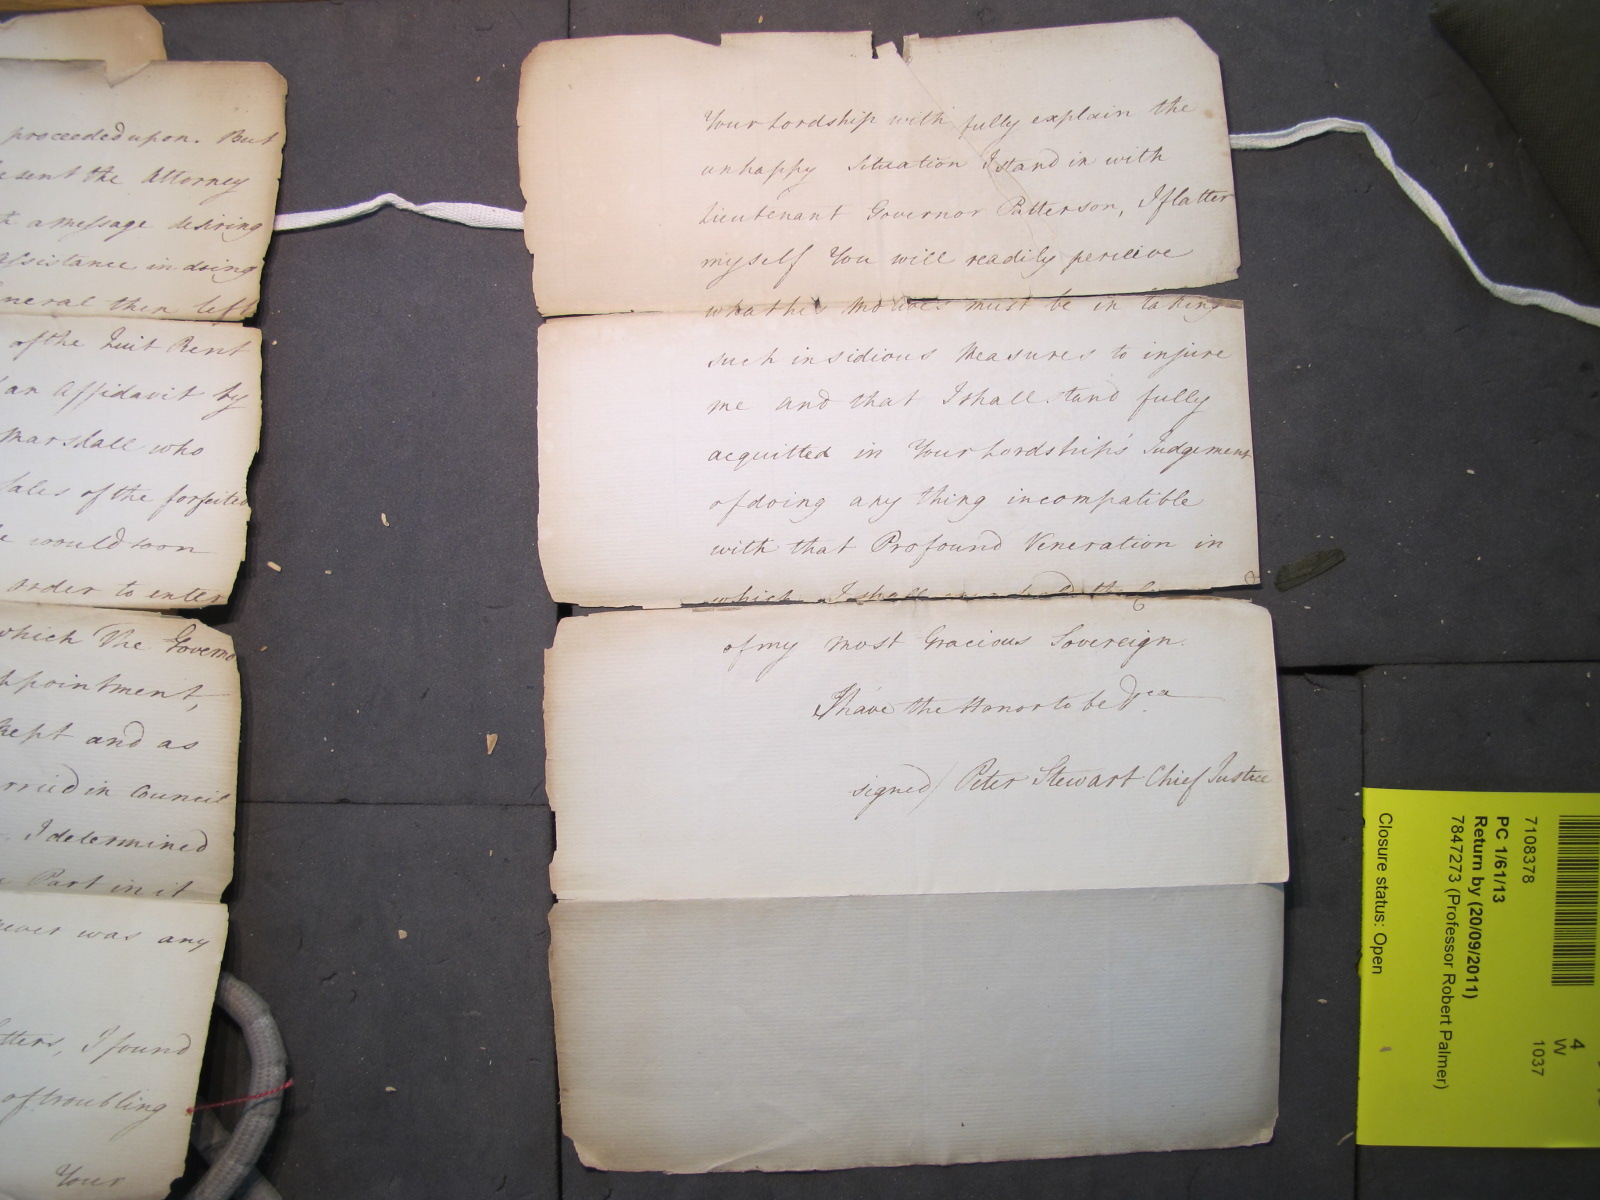 proceeded upon. But
sent the Attorney
a message desiring
assistance in doing
then left
of the Quit Rent
an Affidavit by
Marshall who
Sales of the forfeited
would soon
order to enter
which The Governo
appointment,
kept and as
in Council
I determined
Part in it
never was any
I found
of troubling
Your
Your Lordship with fully explain the
unhappy Situation I stand in with
Lieutenant Governor Patterson, I flatter
myself You will readily perceive
what his Motives must be in taking
such insidious Measures to injure
me and that I shall stand fully
acquitted in Your Lordship's Judgement
of doing any thing incompatible
with that Profound Veneration in
which I shall
of my Most Gracious Sovereign.
I have the Honor to be &ca
signed) Peter Stewart Chief Justice
7108378
PC 1/61/13
Return by (20/09/2011)
7847273 (Professor Robert Palmer)
Closure status: Open
4
W
1037